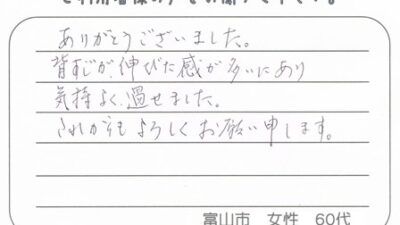 ありがとうございました。
背すじが、伸びた感が多いにあり
気持よく過せました。
これからもよろしくお願い申します。
富山市 女性 60代